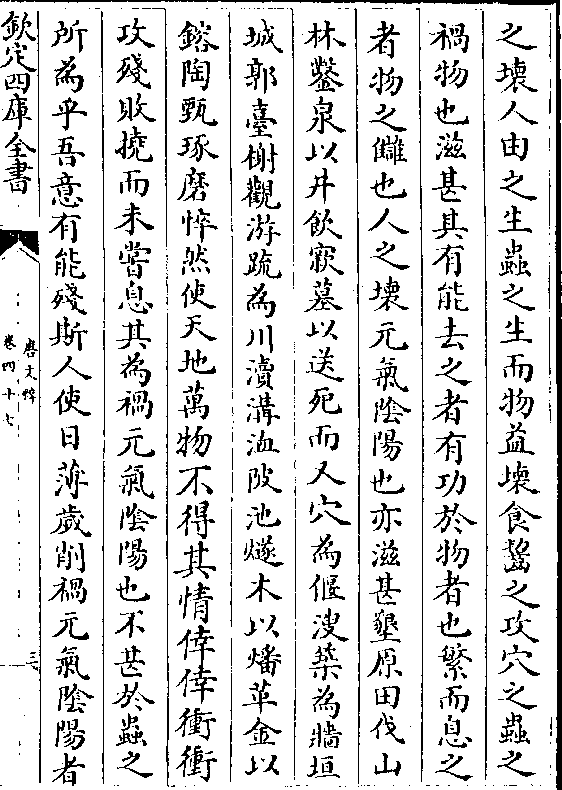 之壞人由之生蟲之生而物益壞食齧之攻穴之蟲之
禍物也滋甚其有能去之者有功於物者也繁而息之
者物之讎也人之壞元氣陰陽也亦滋甚墾原田伐山
林鑿泉以井飲窽墓以送死而又穴為偃溲築為牆垣
城郭臺榭觀游疏為川瀆溝洫陂池燧木以燔革金以
鎔陶甄琢磨悴然使天地萬物不得其情倖倖衝衝
攻殘敗撓而未嘗息其為禍元氣陰陽也不甚於蟲之
所為乎吾意有能殘斯人使日薄歲削禍元氣陰陽者
欽定四庫全書
唐文粹
卷四十七
三